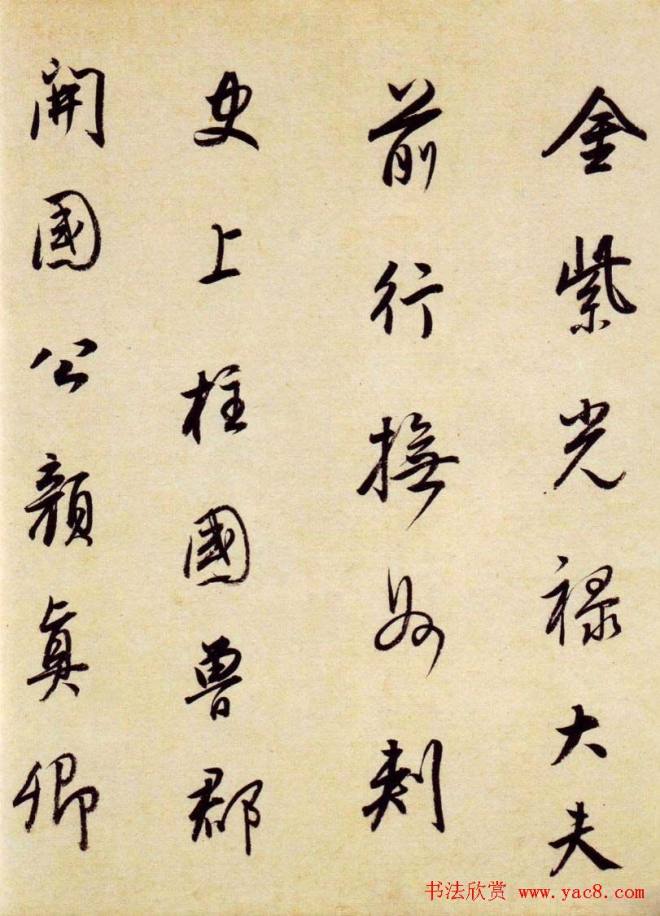 金紫光祿大夫
前行撫州刺
史上柱國魯郡
開國公顏真卿
书法欣赏 www.yac8.com